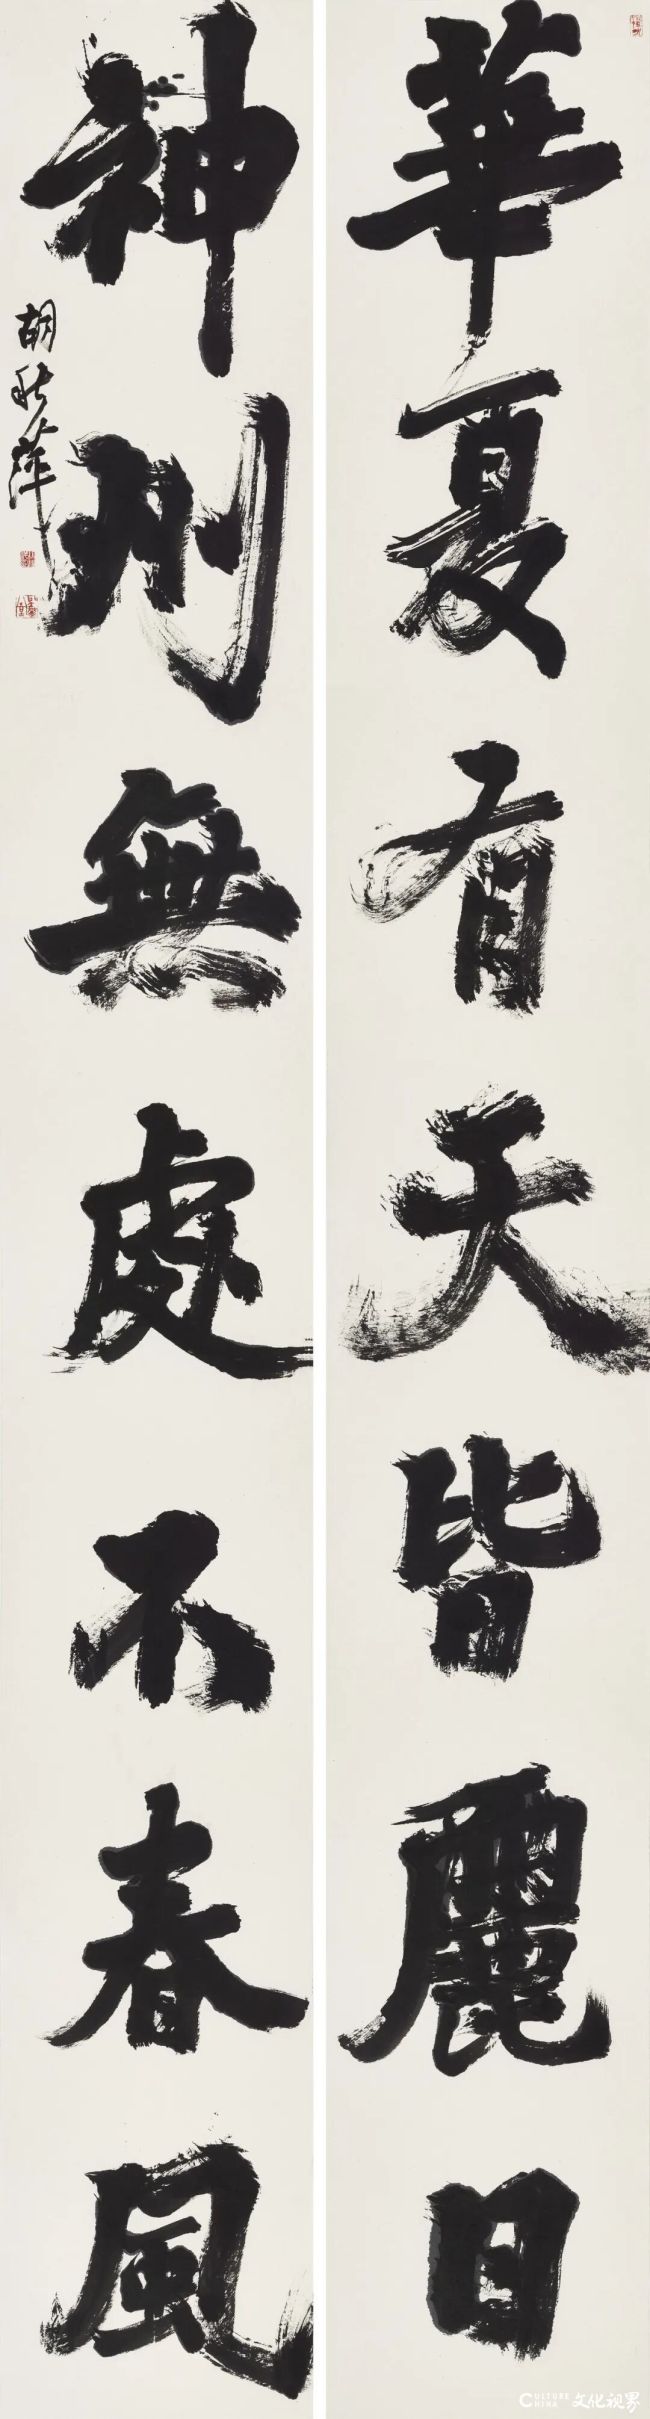 華夏有天皆麗日
神州無處不春風
胡秋萍
CULTURE CHINA 文化视界